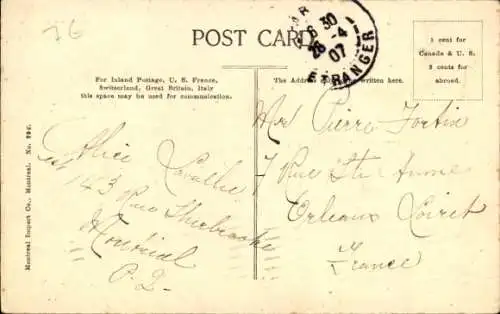 76
POST CARD
For Inland Postage, U. S. France,
Switzerland, Great Britain, Italy
this space may be used for communication.
The Address written here.
1 cent for
Canada & U. S.
2 cents for
abroad.
6 30
26 - 4
07
ETRANGER
Montreal Import Co., Montreal. No.
Alice Lavallée
143 Rue Sherbrooke
Montréal
P. Q.
Pierre Fortin
7 Rue Ste Anne
Orleans Loiret
France